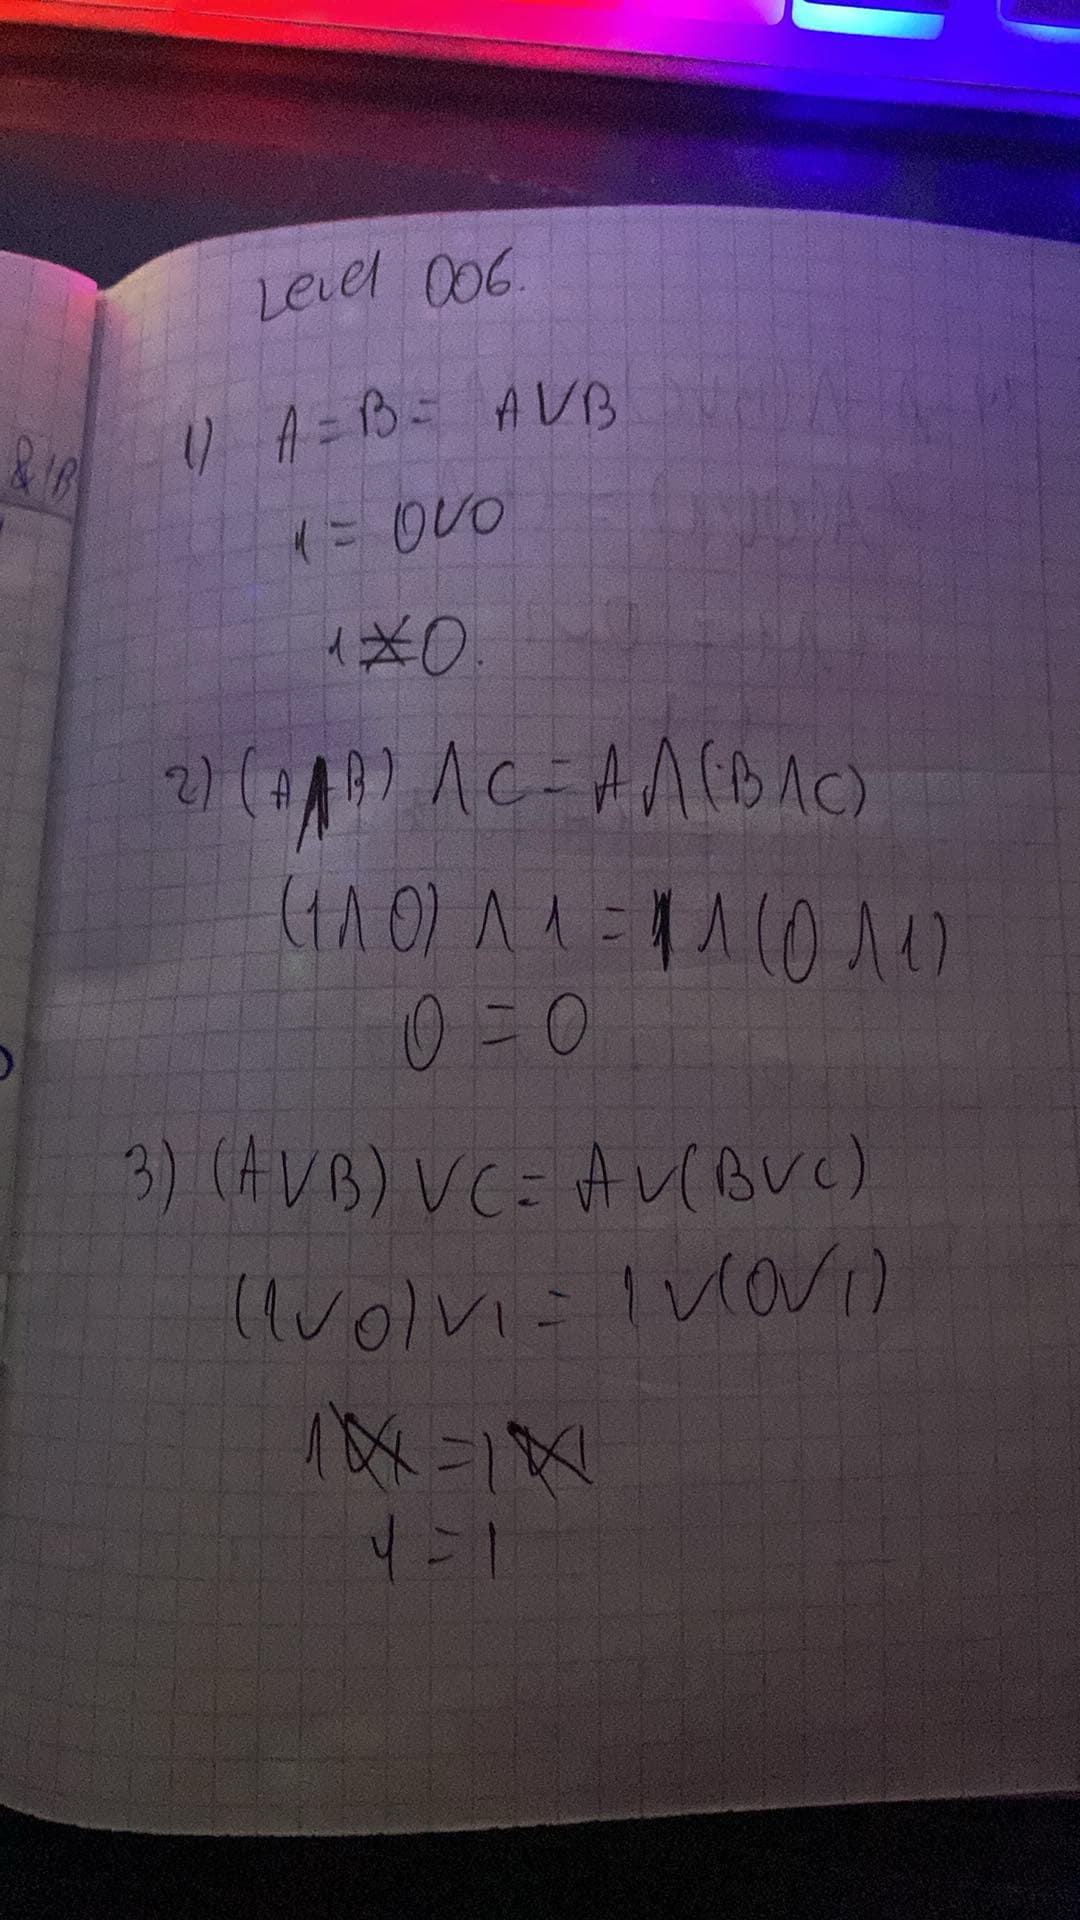 Level 006.
&1B
1) A = B = A∨B
1 = 0∨0
1 ≠ 0.
2) (A∧B) ∧ C = A∧(B∧C)
(1∧0) ∧ 1 = 1∧(0∧1)
0 = 0
3) (A∨B)∨C = A∨(B∨C)
(1∨0)∨1 = 1∨(0∨1)
1 = 1
1 = 1